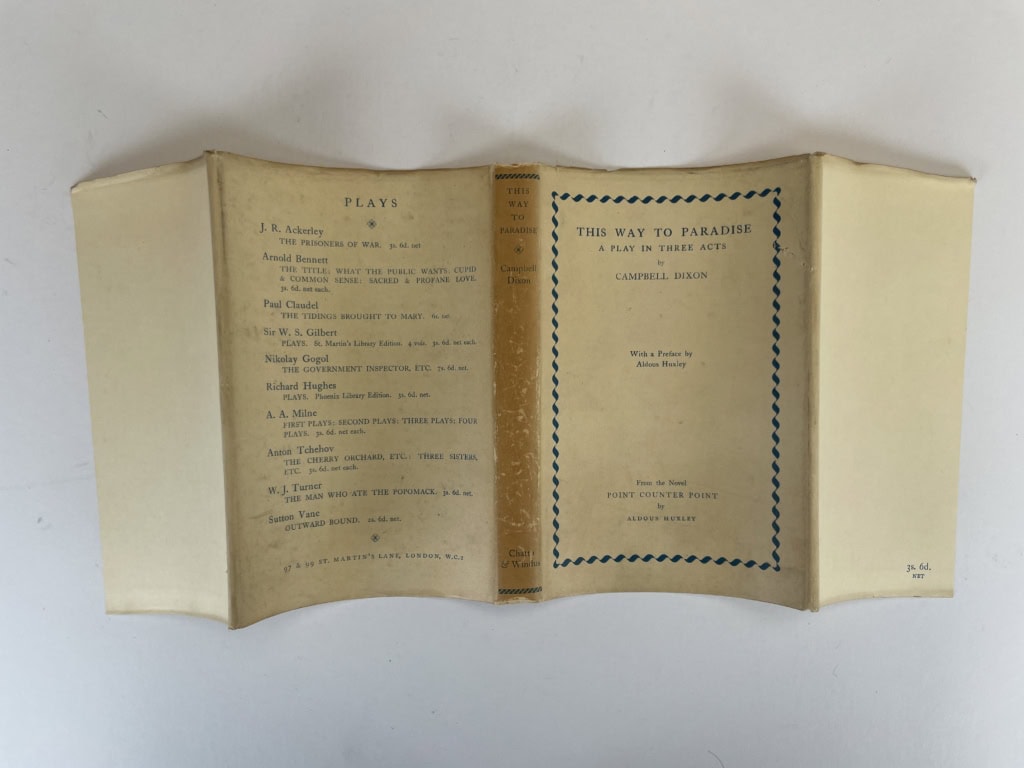 PLAYS
J. R. Ackerley
THE PRISONERS OF WAR. 3s. 6d. net
Arnold Bennett
THE TITLE: WHAT THE PUBLIC WANTS: CUPID
& COMMON SENSE: SACRED & PROFANE LOVE.
3s. 6d. net each.
Paul Claudel
THE TIDINGS BROUGHT TO MARY. 6s. net.
Sir W. S. Gilbert
PLAYS. St. Martin's Library Edition. 4 vols. 3s. 6d. net each.
Nikolay Gogol
THE GOVERNMENT INSPECTOR, ETC. 7s. 6d. net.
Richard Hughes
PLAYS. Phoenix Library Edition. 3s. 6d. net.
A. A. Milne
FIRST PLAYS: SECOND PLAYS: THREE PLAYS: FOUR
PLAYS. 3s. 6d. net each.
Anton Tchehov
THE CHERRY ORCHARD, ETC.: THREE SISTERS,
ETC. 3s. 6d. net each.
W. J. Turner
THE MAN WHO ATE THE POPOMACK. 3s. 6d. net.
Sutton Vane
OUTWARD BOUND. 2s. 6d. net.
97 & 99 ST. MARTIN'S LANE, LONDON, W.C.2
THIS
WAY
TO
PARADISE
Campbell
Dixon
Chatto
& Windus
THIS WAY TO PARADISE
A PLAY IN THREE ACTS
by
CAMPBELL DIXON
With a Preface by
Aldous Huxley
From the Novel
POINT COUNTER POINT
by
ALDOUS HUXLEY
3s. 6d.
NET